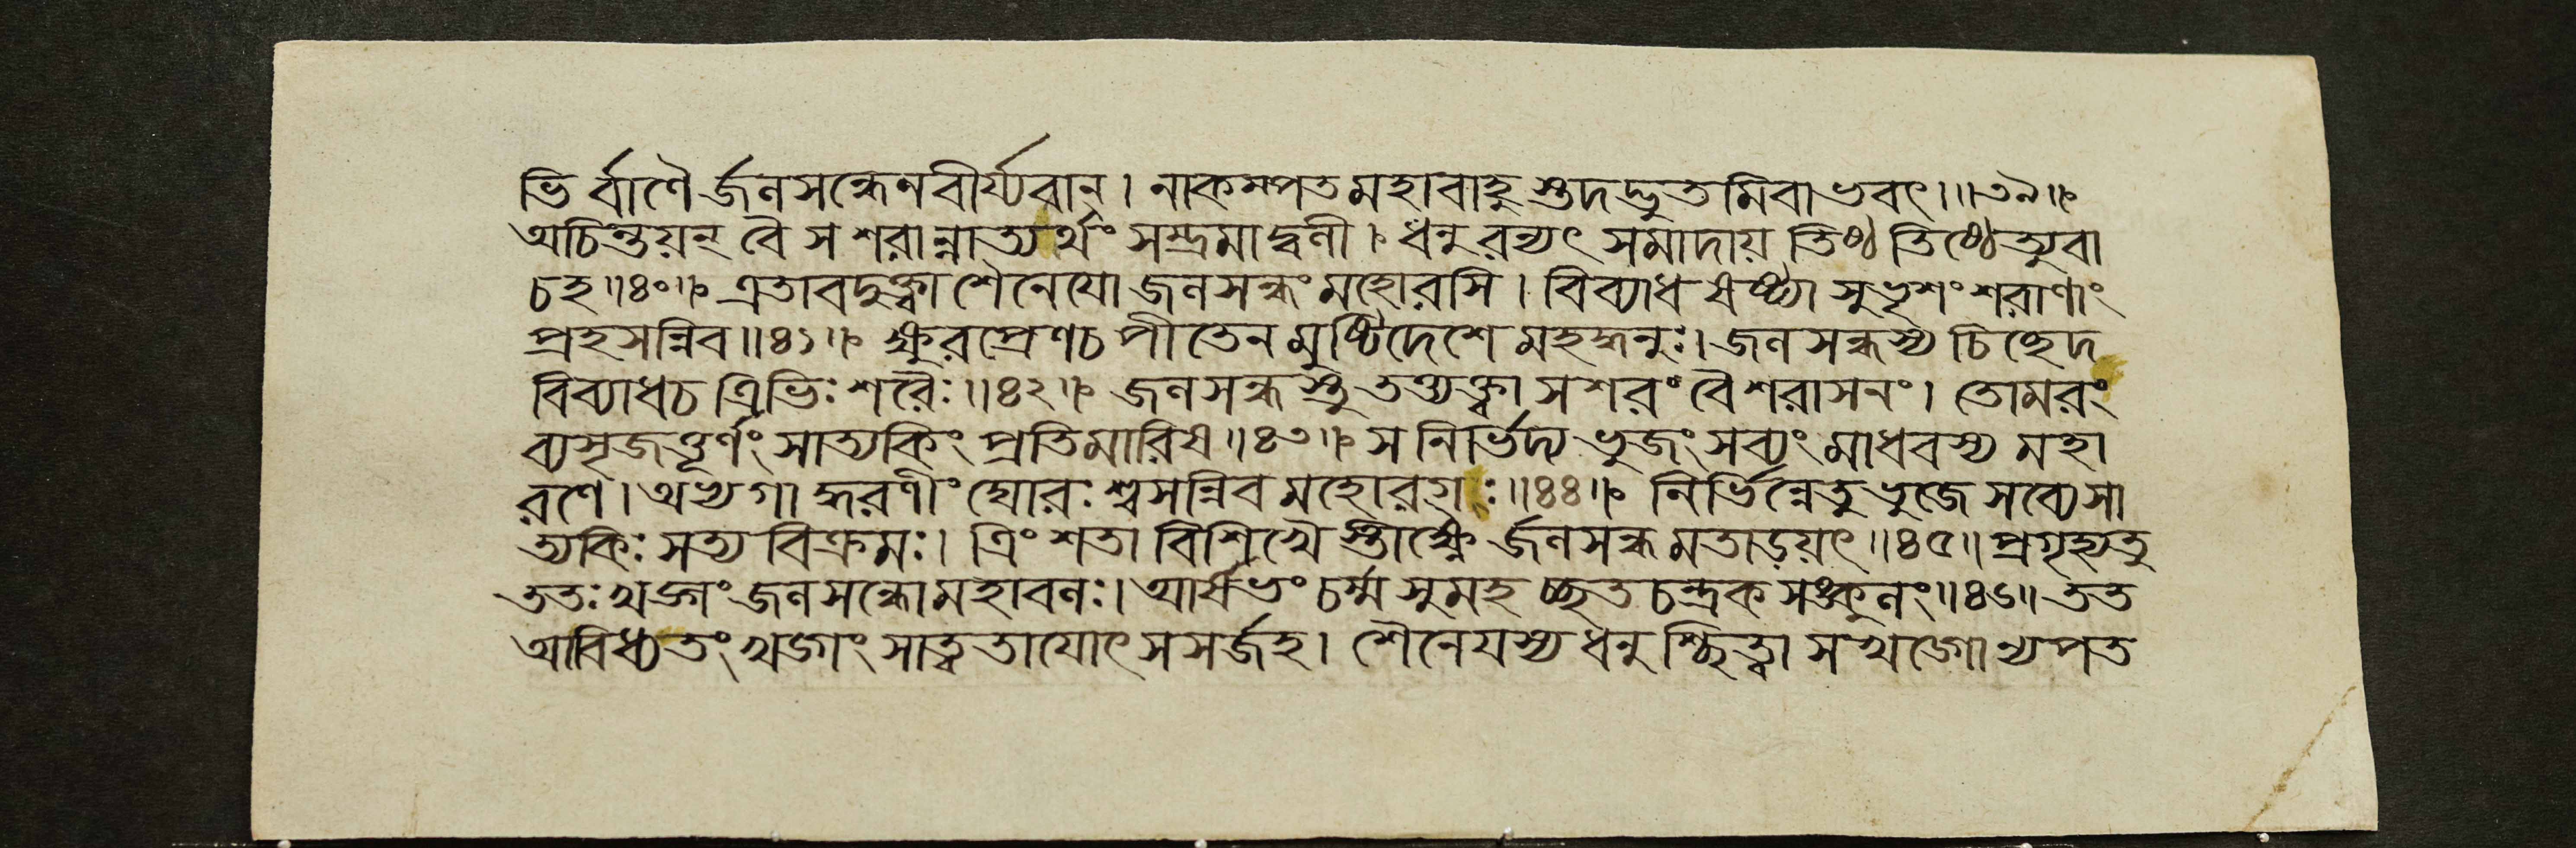 ভি র্বাণৈ র্জলসন্ধেন বীর্য্যবান্। নাকম্পত মহাবাহু স্তদদ্ভুতমিবাভবৎ।॥৩৯॥
অচিন্তয়ন্ বৈ স শরান্নাত্যর্থং সম্ভ্রমাদ্বলী। ধনুরন্যৎ সমাদায় তিষ্ঠ তিষ্ঠেত্যুবা
চহ॥৪০॥ এতাবদুক্ত্বা শৈনেযো জলসন্ধং মহোরসি। বিব্যাধ ষষ্ট্যা সুভৃশং শরাণাং
প্রহসন্নিব॥৪১॥ ক্ষুরপ্রেণচ পীতেন মুষ্টিদেশে মহদ্ধনুঃ। জলসন্ধস্য চিচ্ছেদ
বিব্যাধচ ত্রিভিঃ শরৈঃ॥৪২॥ জলসন্ধ স্তু তত্ত্যক্ত্বা সশরং বৈ শরাসনং। তোমরং
ব্যসৃজত্তূর্ণং সাত্যকিং প্রতি মারিষ॥৪৩॥ স নির্ভিদ্য ভুজং সব্যং মাধবস্য মহা
রণে। অভ্যগাদ্ধরণীং ঘোরঃ শ্বসন্নিব মহোরগঃ॥৪৪॥ নির্ভিন্নেতু ভুজে সব্যে সা
ত্যকিঃ সত্যবিক্রমঃ। ত্রিংশতা বিশিখৈ স্তীক্ষ্ণৈ র্জলসন্ধমতাড়য়ৎ॥৪৫॥ প্রগৃহ্যতু
ততঃ খড্গং জলসন্ধো মহাবলঃ। আর্ষভং চর্ম্ম সুমহ চ্ছতচন্দ্রকসঙ্কুলং॥৪৬॥ তত
আবিধ্য তং খড্গং সাত্বতাযোৎসসর্জহ। শৈনেযস্য ধনু শ্ছিত্ত্বা স খড্গো ন্যপত